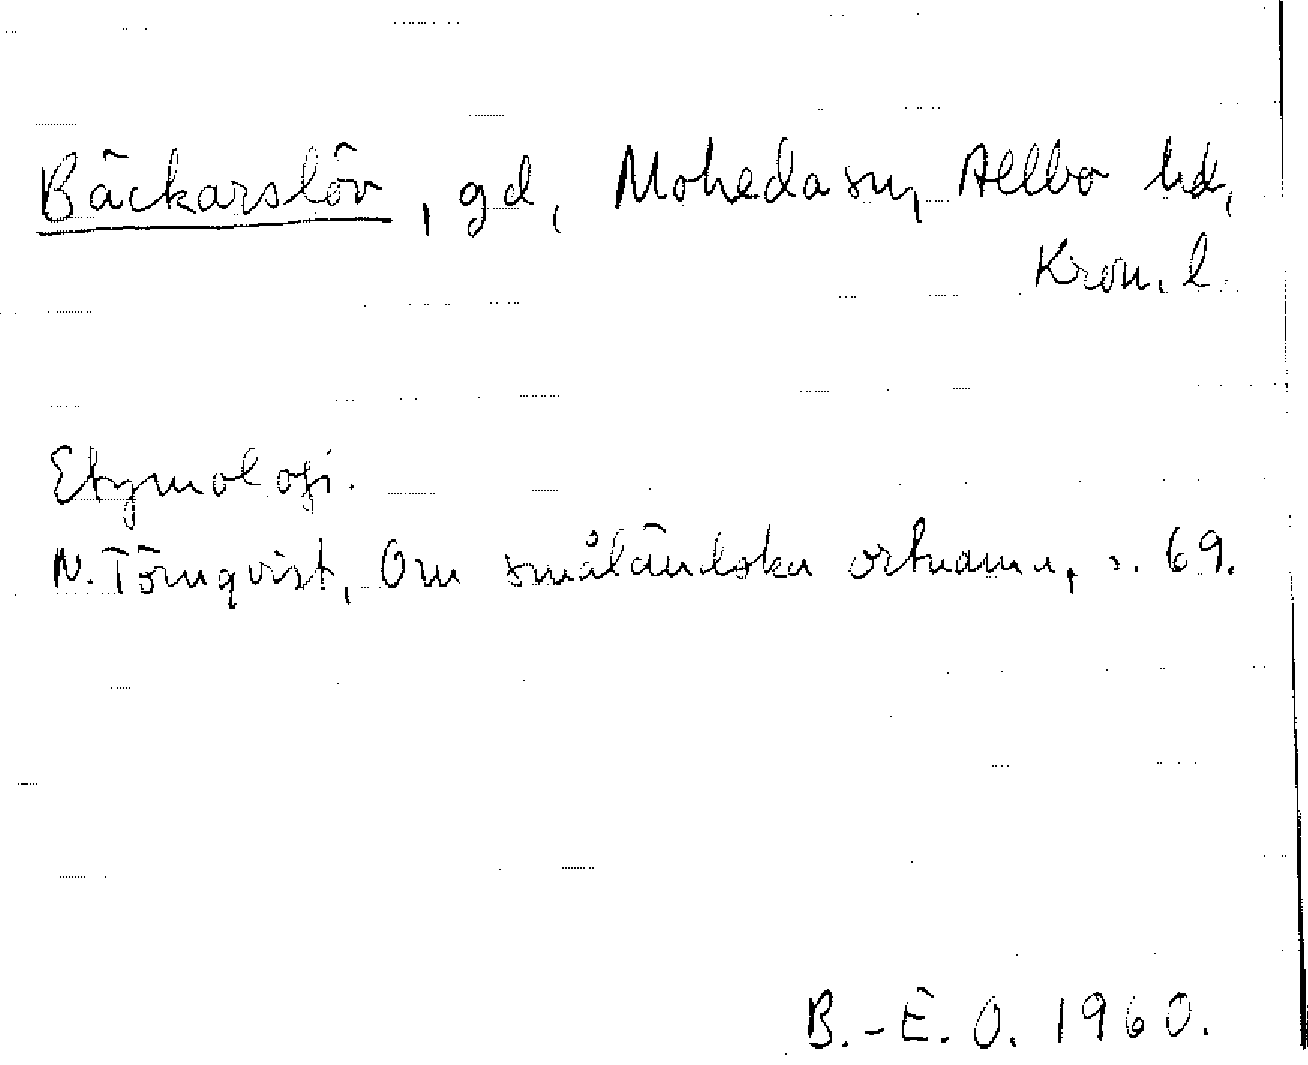 Bäckarslöv, gd, Moheda sn, Allbo hd,
Kron. l.
Etymologi.
N. Törnqvist, Om småländska ortnamn, s. 69.
B.-E. O. 1960.